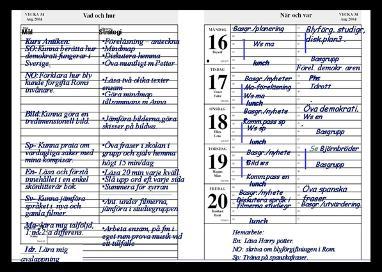 VECKA 34
Aug. 2004
Vad och hur
När och var
VECKA 34
Aug. 2004
Mål
Strategi
Kurs Antiken:
SO: Kunna berätta hur
demokrati fungerar i
Sverige.
NO: Förklara hur bly
kunde förgifta Roms
invånare.
Bild: Kunna göra en
tredimensionell bild.
Sp- Kunna prata om
vardagliga saker med
mina kompisar.
En- Läsa och förstå
innehållet i en enkel
skönlitterär bok.
Sv- Kunna jämföra
språket i nya och
gamla filmer
Ma- kära mig talföljd,
Idr. Lära mig
avslappning
-Föreläsning - anteckna
-Mindmap
-Diskutera hemma
-Öva muntligt m Petter
-Läsa två olika texter
ensam
-Göra mindmap
tillsammans m Anna
-Jämföra bilderna, göra
skisser på bildens
-Öva fraser i skolan i
grupp och själv hemma
högt 15 min/dag
-Läsa 20 min varje kväll.
Slå upp ord ett varje sida
-Summera för syrran
-Ant. under filmerna,
jämföra i studiegruppen
-Arbeta ensam, på fm i
eget rum prova musik vid
ett tillfälle
MÅNDAG
16
Basgr./planering
We ma
lunch
Blyförg. studigr,
disk.plan3 .
Basgrupp
Förel. demokr. aren
TISDAG
17
Basgr./nyheter
Ma-föreläsning
We ma
lunch
Phs
Idrott
ONSDAG
18
Basgr./nyheter
Komm.pass sp
We sp
lunch
Öva demokrati.
We en
Basgrupp
TORSDAG
19
Basgr./nyheter
Bild ws
Komm.pass en
lunch
Se Björnbröder
Basgrupp
FREDAG
20
Basgr./nyheter
Diskutera språk i
filmerna studiegr
lunch
Öva spanska
fraser
Basgr./utvärdering.
Hemarbete:
En: Läsa Harry potter.
NO: skriva om blyförgiftningen i Rom.
Sp: Träna på spanskafraser.